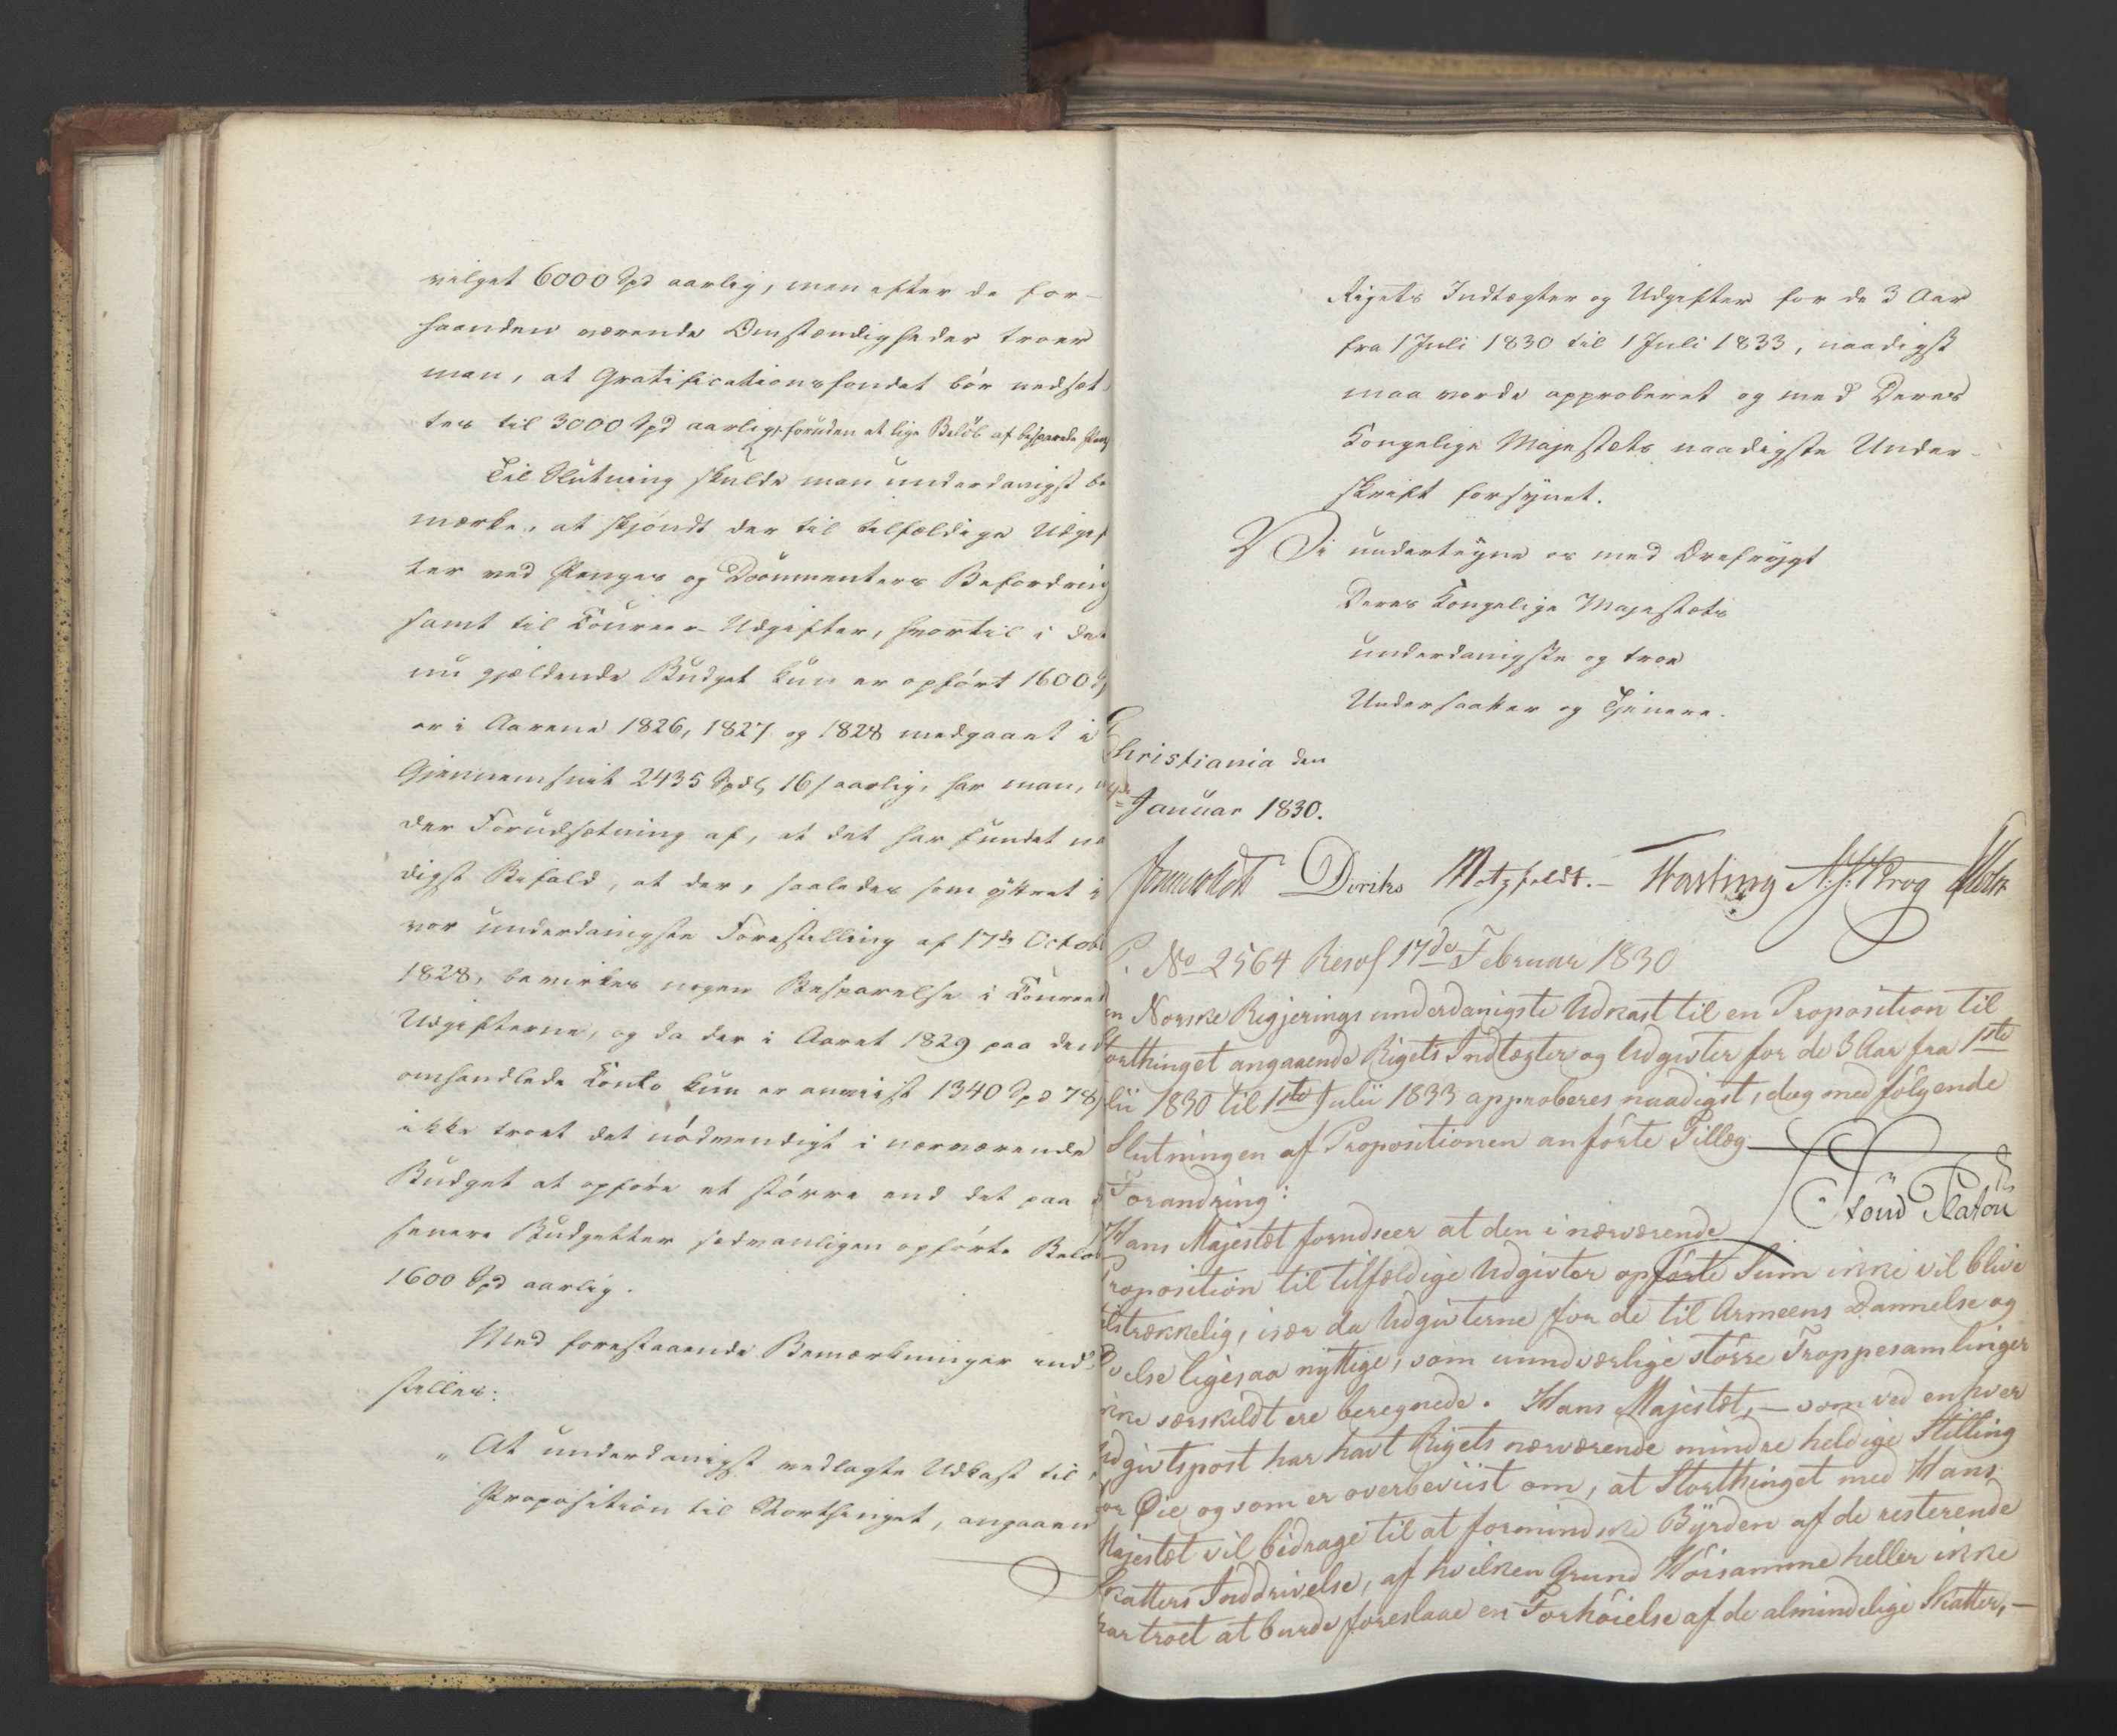 vilget 6000 Spd aarlig, men efter de for-
haanden værende Omstændigheder troer
man, at Gratificationsfondet bör nedsæt-
tes til 3000 Spd aarlig, foruden et lige Belöb af besparede
Til Slutning skulde man underdanigst be
mærke, at skjöndt der til tilfældige Udgif
ter ved Penges og Documenters Befordring
samt til Coureer-Udgifter, hvortil i det
nu gjældende Budget kun er opfört 1600
er i Aarene 1826, 1827 og 1828 medgaaet i
Gjennemsnit 2435 Spd 16 s aarlig, har man,
der Forudsætning af, at det har fundet na
digst Bifald, at der, saaledes som yttret i
vor underdanigste Forestilling af 17de Octob
1828, bevirkes nogen Besparelse i Coureer
Udgifterne, og da der i Aaret 1829 paa den
omhandlede Conto kun er anviist 1340 Spd 78
ikke troet det nödvendigt i nærværende
Budget at opföre et större end det paa d
senere Budgetter sædvanligen opförte Belöb
1600 Spd aarlig.
Med forestaaende Bemærkninger ind-
stilles:
„At underdanigst vedlagte Udkast til
Proposition til Storthinget, angaaen
Rigets Indtægter og Udgifter for de 3 Aar
fra 1 Juli 1830 til 1 Juli 1833, naadigst
maa vorde approberet og med Deres
Kongelige Majestæts naadigste Under-
skrift forsynet.
Vi underteyne os med Ærefrygt
Deres Kongelige Majestæts
underdanigste og troe
Undersaatter og Tjenere.
Christiania den
Januar 1830.
Diriks Motzfeldt. Fasting Krog
P. No 2564 Resol 17de Februar 1830
en Norske Rigjerings underdanigste Udkast til en Proposition til
orthinget angaaende Rigets Indtægter og Udgivter for de 3 Aar fra 1ste
lii 1830 til 1ste Julii 1833 approberes naadigst, dog med fölgende
Slutningen af Propositionen anförte Tillæg
Forandring:
Hans Majestæt forudseer at den i nærværende
Proposition til tilfældige Udgivter opförte Sum ikke vil blive
ilstrækkelig, især da Udgivterne for de til Armeens Dannelse og
velse ligesaa nyttige, som uundværlige större Troppesamlinger
kke særskildt ere beregnede. Hans Majestæt, – som ved enhver
dgivtspost har havt Rigets nærværende mindre heldige Stilling
or Øie og som er overbeviist om, at Storthinget med Hans
Majestæt vil bidrage til at formindske Byrden af de resterende
Skatters Inddrivelse, af hvilken Grund Höisamme heller ikke
har troet at burde foreslaae en Forhöielse af de almindelige Skatter, –